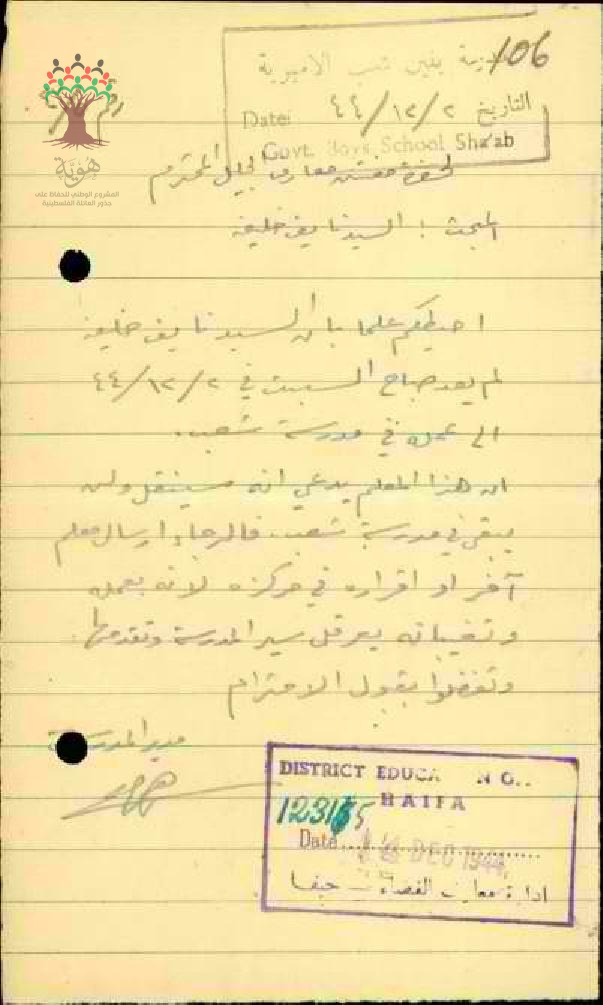 106
مدرسة بنين شعب الاميرية
التاريخ ٤٤/١٢/٢
Date:
Govt. Boys School Sha'ab
رقم
هوية
المشروع الوطني للحفاظ على
جذور العائلة الفلسطينية
لحضرة مفتش معارف الجليل المحترم
المبحث : السيد نايف خليفه
احيطكم علما بان السيد نايف خليفه
لم يعد صباح السبت في ٤٤/١٢/٢
الى عمله في مدرسة شعب.
ان هذا المعلم يدعي انه سينقل ولن
يبقى في مدرسة شعب. فالرجاء ارسال معلم
آخر او اقراره في مركزه لانه بعمله
وتغيباته يعرقل سير المدرسة وتقدمها.
وتفضلوا بقبول الاحترام
مدير المدرسة
DISTRICT EDUCA N O..
HAIFA
Date DEC 1944
ادارة معارف القضاء حيفا